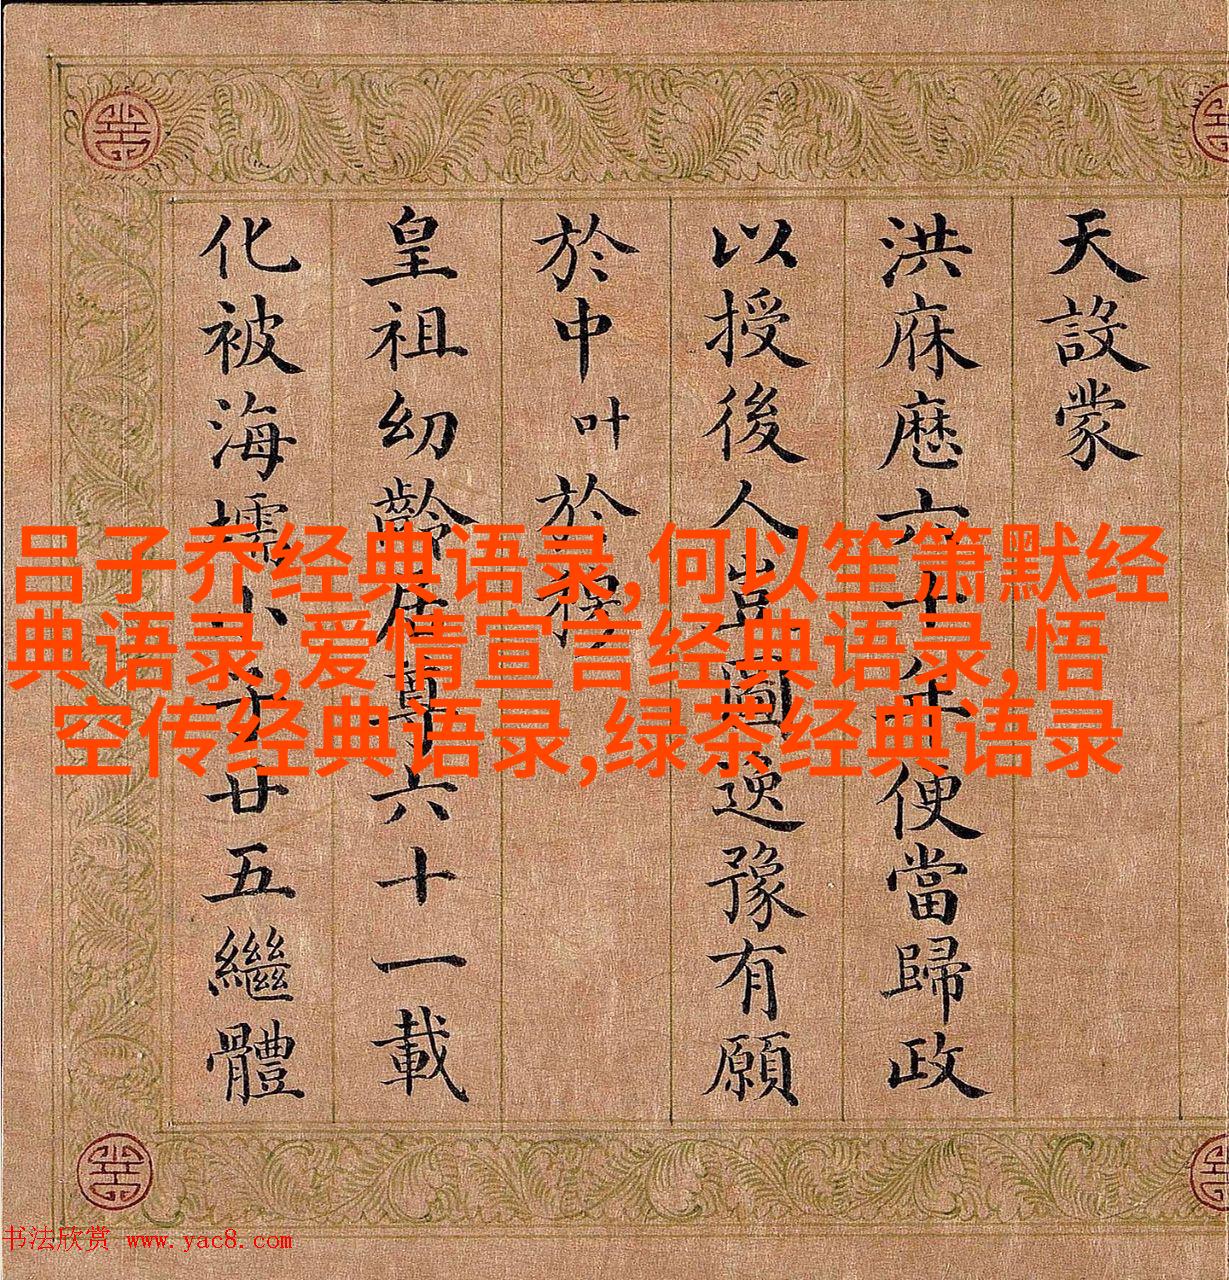 天設蒙
洪庥歷六十年便當歸政
以授後人豈圖逸豫有願
於中叶於穆
皇祖幼齡居尊六十一載
化被海壖小子廿五繼體
吕子乔经典语录,何以笙箫默经
典语录,爱情宣言经典语录,悟
空传经典语录,绿茶经典语录
书法欣赏 www.yac8.com